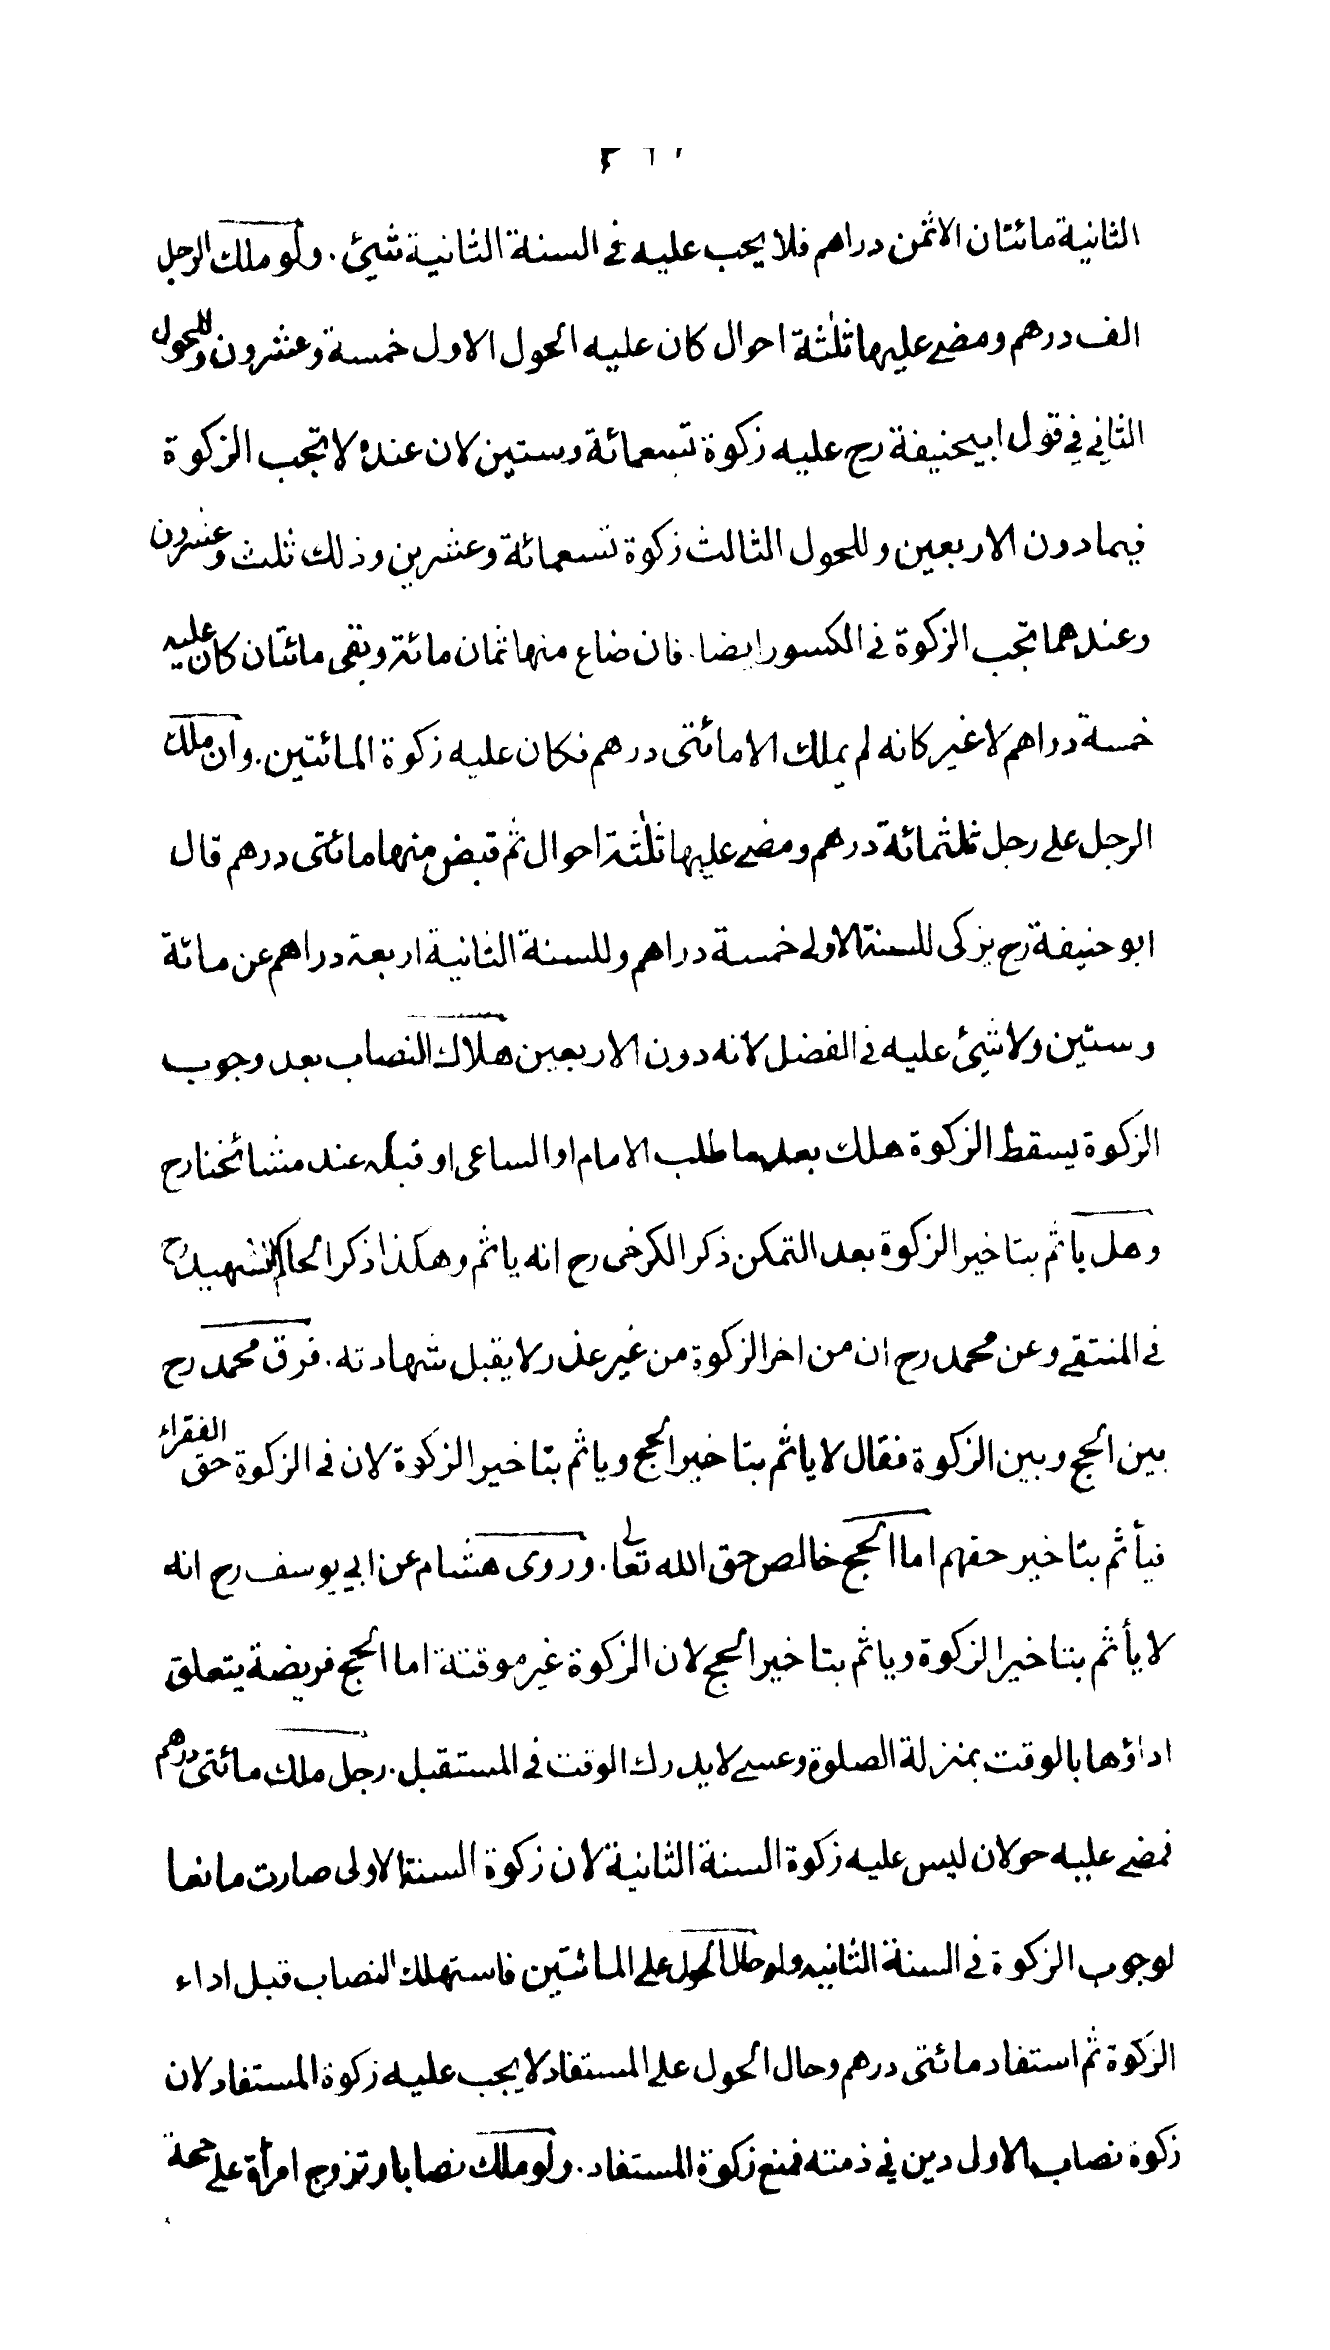 الثانية مائتان الاثمن دراهم فلا يجب عليه فى السنة الثانية شيئ. ولو ملك الرجل
الف درهم ومضے عليها ثلٰثة احوال كان عليه الحول الاول خمسة وعشرون وللحول
الثاني في قول ابيحنيفة رح عليه زكوة تسعمائة وستين لان عنده لا تجب الزكوة
فيما دون الاربعين وللحول الثالث زكوة تسعمائة وعشرين وذلك ثلث وعشرون
وعندهما تجب الزكوة فى الكسور ايضا. فان ضاع منها ثمان مائة وبقى مائتان كان عليه
خمسة دراهم لا غير كانه لم يملك الا مائتى درهم فكان عليه زكوة المائتين. وان ملك
الرجل على رجل ثلثمائة درهم ومضے عليها ثلٰثة احوال ثم قبض منها مائتى درهم قال
ابو حنيفة رح يزكى للسنة الاولى خمسة دراهم وللسنة الثانية اربعة دراهم عن مائة
وستين ولا شيئ عليه فى الفضل لانه دون الاربعين هلاك النصاب بعد وجوب
الزكوة يسقط الزكوة هلك بعدما طلب الامام او الساعى او قبله عند مشائخنا رح
وهل ياثم بتاخير الزكوة بعد التمكن ذكر الكرخى رح انه ياثم وهكذا ذكر الحاكم الشهيد رح
فى المنتقے وعن محمد رح ان من اخر الزكوة من غير عذر لا يقبل شهادته. فرق محمد رح
بين الحج وبين الزكوة فقال لا ياثم بتاخير الحج وياثم بتاخير الزكوة لان فى الزكوة حق الفقراء
فيأثم بتاخير حقهم اما الحج خالص حق الله تعالى. وروى هشام عن ابي يوسف رح انه
لا يأثم بتاخير الزكوة وياثم بتاخير الحج لان الزكوة غير موقتة اما الحج فريضة يتعلق
اداؤها بالوقت بمنزلة الصلوة وعسے لا يدرك الوقت فى المستقبل. رجل ملك مائتى درهم
فمضے عليه حولان ليس عليه زكوة السنة الثانية لان زكوة السنة الاولى صارت مانعا
لوجوب الزكوة فى السنة الثانيه ولو حال الحول على المائتين فاستهلك النصاب قبل اداء
الزكوة ثم استفاد مائتى درهم وحال الحول على المستفاد لا يجب عليه زكوة المستفاد لان
زكوة نصاب الاول دين في ذمته فمنع زكوة المستفاد. ولو ملك نصابا وتزوج امرأة على